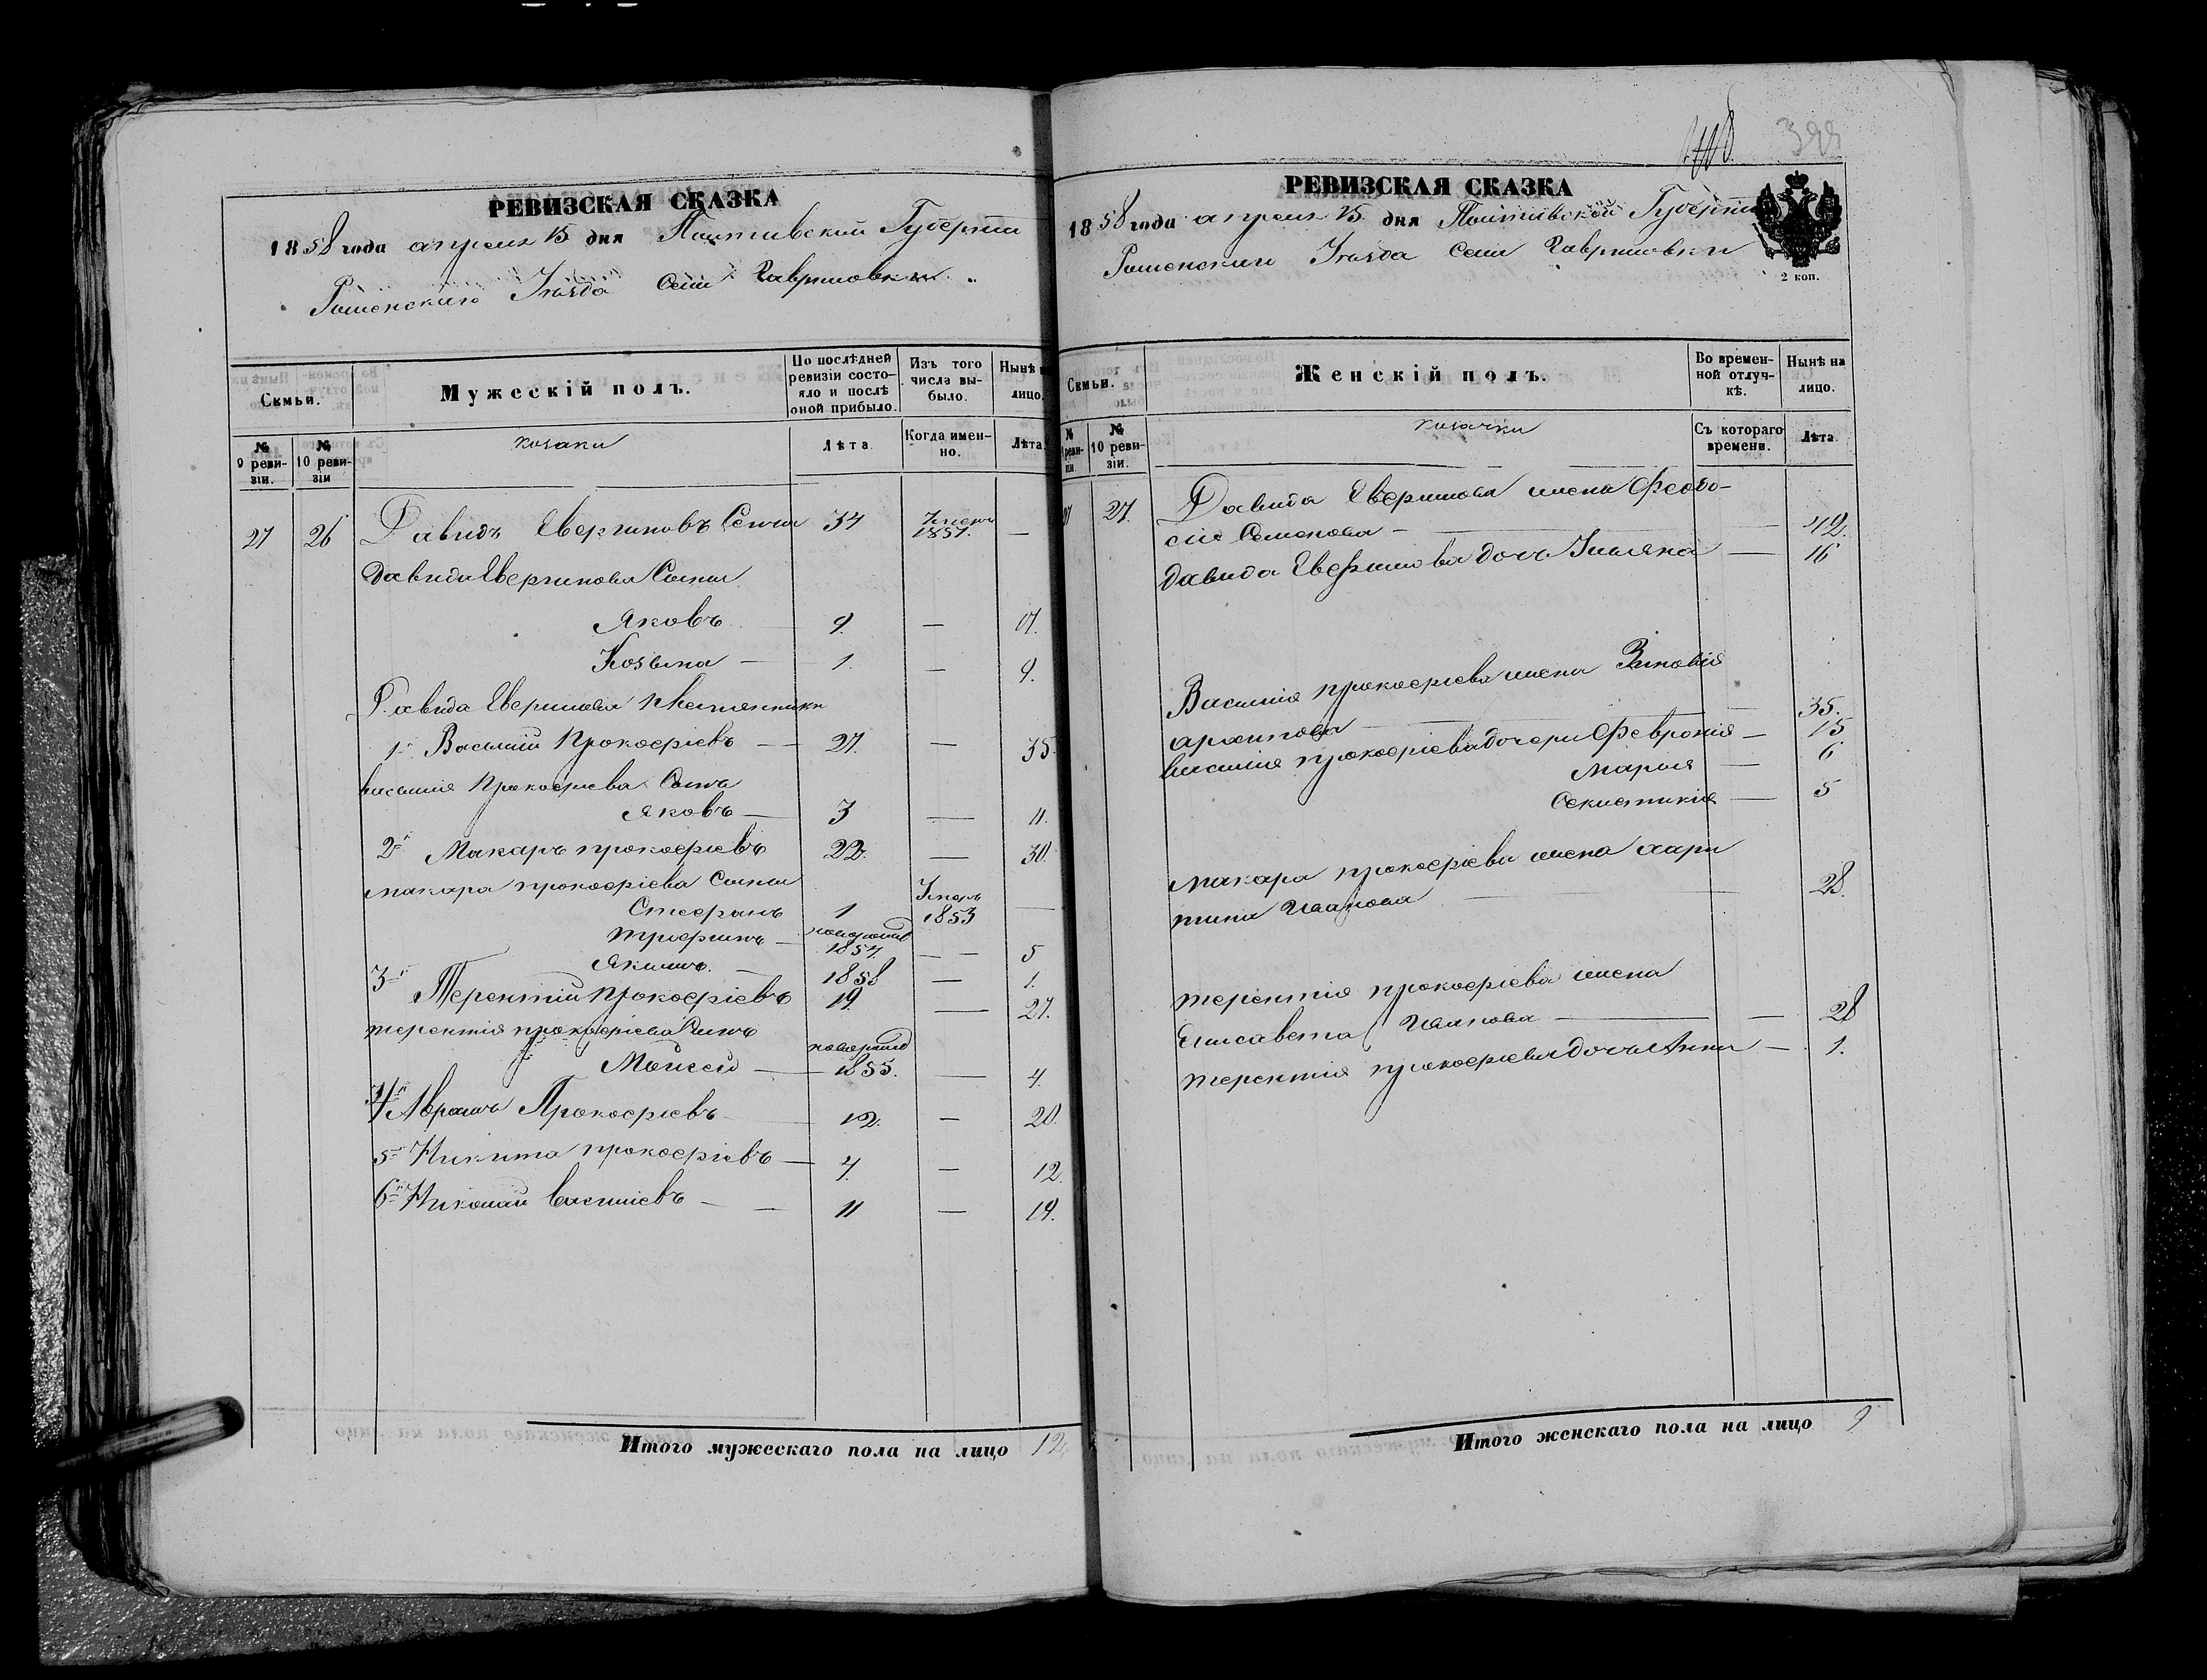 РЕВИЗСКАЯ СКАЗКА
1858 года апреля 15 дня Полтавской Губернии
Роменского Уезда Села Гавриловки
Семьи.
Мужескій полъ.
По послѣдней ревизіи состояло и послѣ оной прибыло.
Изъ того числа выбыло.
Нынѣ на лицо.
№ 9 ревизіи.
№ 10 ревизіи
козаки
Лѣта.
Когда именно.
Лѣта
27 26 Давидъ Евфимовъ Сенча 34 —
1857.
Давида Евфимова Сыны
Яковъ 9. — 17.
Козьма — 1. — 9.
Давида Евфимова племянники
1й Василій Прокофіевъ — 27. — 35.
Василія Прокофіева Сынъ
Яковъ — 3 — 11.
2й Макаръ прокофіевъ 22. — 30.
Макара прокофіева Сыны
Стефанъ 1 1853 —
Трифинъ — 1854. — 5
Якимъ. — 1858 — 1.
3й Терентій Прокофіевъ 19. — 27.
терентія прокофіева Сынъ
Мойсей — 1855. — 4.
4й Аврамъ Прокофіевъ 12. — 20.
5й Никита прокофіевъ — 4. — 12.
6й Николай Василіевъ — 11 — 19.
Итого мужескаго пола на лицо 12
399
РЕВИЗСКАЯ СКАЗКА
1858 года апреля 15 дня Полтавской Губернии
Роменского Уезда Села Гавриловки
2 коп.
Семьи.
Женскій полъ.
Во временной отлучкѣ.
Нынѣ на лицо.
№ 9 ревизіи.
№ 10 ревизіи.
козачки
Съ котораго времени.
Лѣта.
27 27. Давида Евфимова жена Феодо-
сія Семенова — 42.
Давида Евфимова дочь Ульяна — 16
Василія прокофіева жена Зиновія
архипова — 35.
василія прокофіева дочери Февронія — 15
Марія — 6
5
Макара прокофіева жена хари
тина Иванова — 28.
терентія прокофіева жена
Елисавета Иванова — 28
терентія прокофіева дочь Анна — 1.
Итого женскаго пола на лицо 9